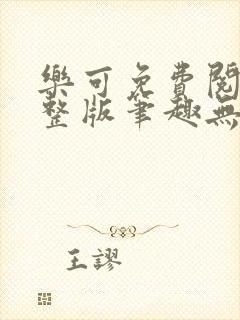 樂可免費閱
整版筆趣無
王謬